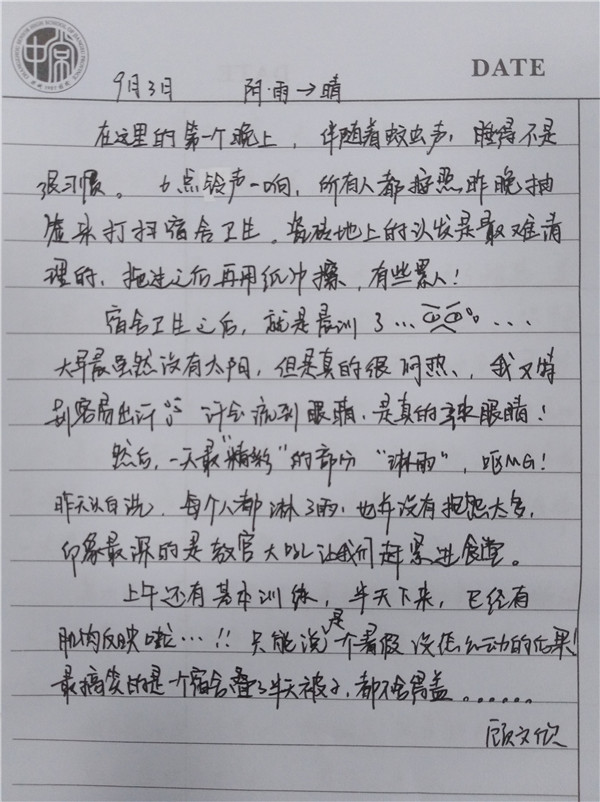 DATE
9月3日 阴·雨→晴
在这里的第一个晚上，伴随着蚊虫声，睡得不是
很习惯。6点铃声一响，所有人都按照昨晚抽
签来打扫宿舍卫生。瓷砖地上的头发是最难清
理的，拖过之后再用纸巾擦，有些累人！
宿舍卫生之后，就是晨训了... ...
大早晨虽然没有太阳，但是真的很闷热、我又特
别容易出汗 汗会流到眼睛，是真的辣眼睛！
然后，一天最"精彩"的部分"淋雨"，哦MG！
昨天认白说，每个人都淋了雨，也并没有抱怨太多，
印象最深的是教官大吼让我们赶紧进食堂。
上午还有基本训练，半天下来，已经有
肌肉反映啦...!! 只能说是一个暑假没怎么动的后果！
最搞笑的是一个宿舍叠了半天被子，都不舍得盖......
顾文欣